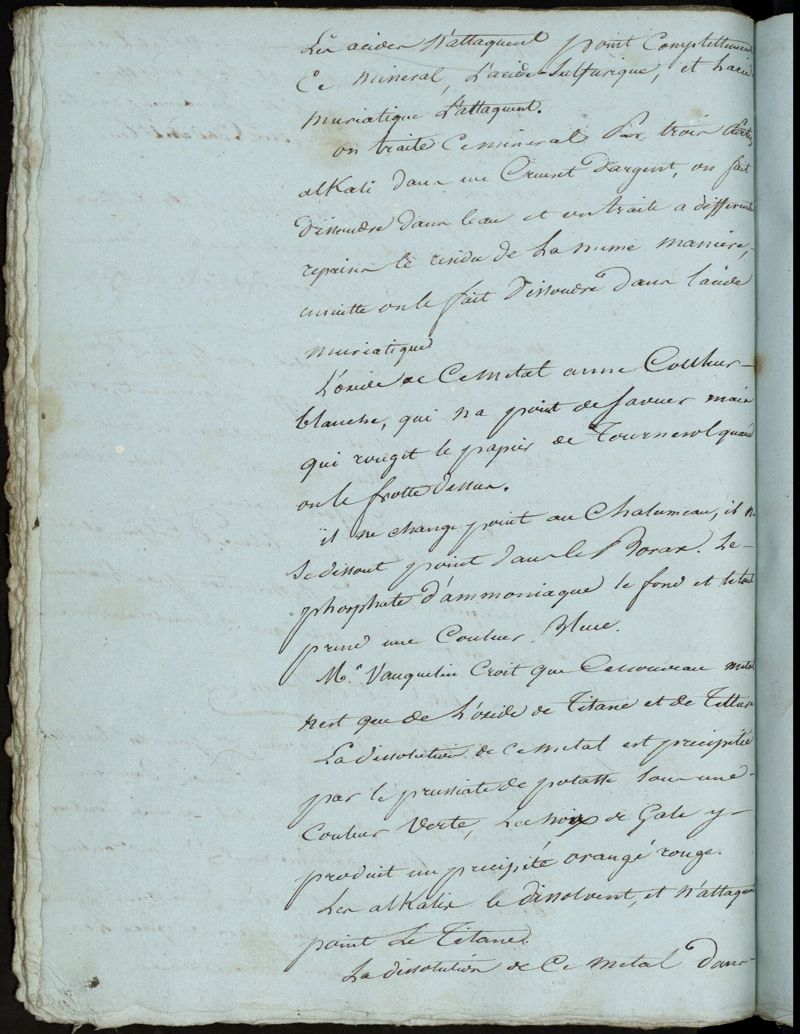 Les acides n'attaquent point Complettement
Ce mineral, L'acide Sulfurique, et Lacide
muriatique L'attaquent.
on traite Ce mineral Par trois parties
alKali dans une Creuset D'argent, on fait
Dissoudre dans leau et on traite a differente
reprises le residu de La meme maniere,
ensuitte on le fait Dissoudre dans lacide
muriatique
L'oxide de Ce Metal a une Coulleur
blanche, qui na point de saveur mais
qui rougit le papier de Tournesol quand
on le frotte dessus.
il ne change point au Chalumeau, il ne
Se dissout point dans le Borax. Le
phosphate d'ammoniaque le fond et le tout
prend une Couleur Bleue.
Mr. Vauquelin Croit que Ce nouveau metal
nest que de L'oxide de Titane et de Tellur
La dissolution de ce metal est precipitée
par le prussiate de potasse Sous une
Couleur Verte, La noix de Gale y
produit un precipité orangé rouge.
Les alKalis le dissolvent, et n'attaquent
point Le Titane.
La dissolution de Ce metal Dans